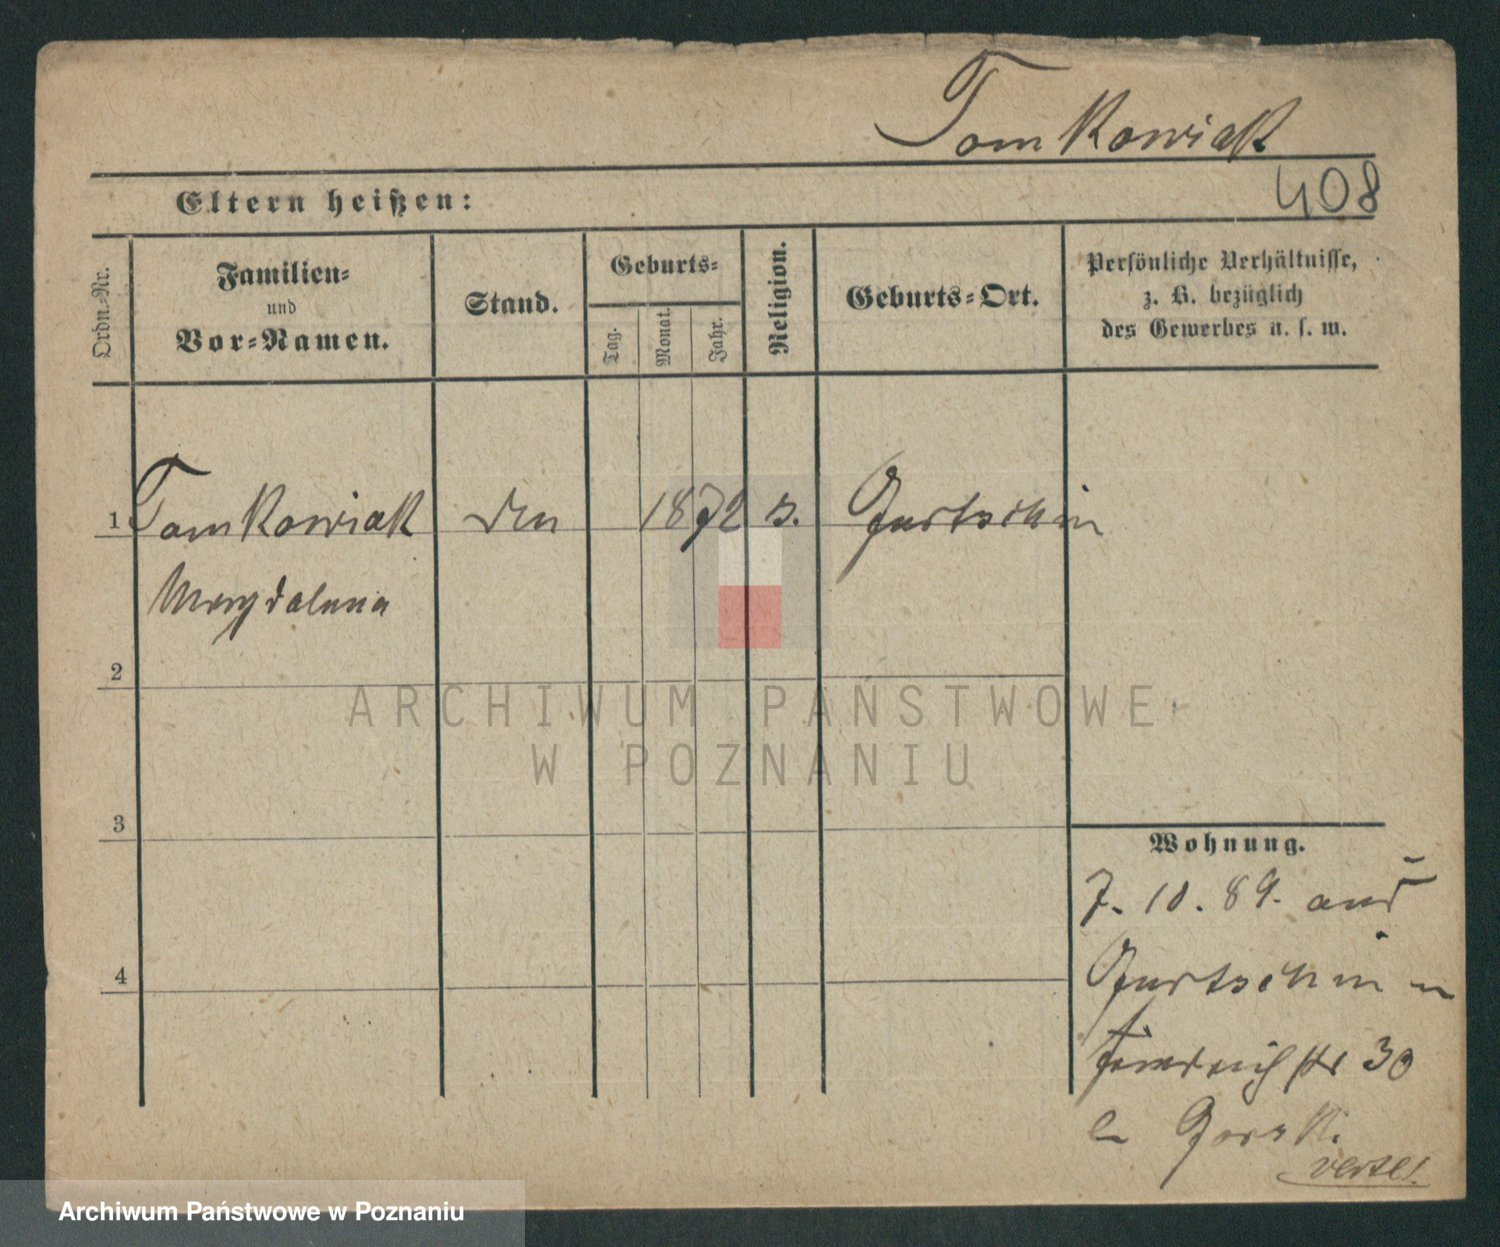 Tomkowiak
408
Eltern heißen:
Ordn.-Nr.
Familien-
und
Vor-Namen.
Stand.
Geburts-
Tag.
Monat.
Jahr.
Religion.
Geburts-Ort.
Persönliche Verhältnisse,
z. B. bezüglich
des Gewerbes u. s. w.
1 Tomkowiak 1872 Gurtschin
Magdalena
2
3
4
Wohnung.
7. 10. 89. aus
Gurtschin
30
Gorski
verte!
ARCHIWUM PAŃSTWOWE
W POZNANIU
Archiwum Państwowe w Poznaniu